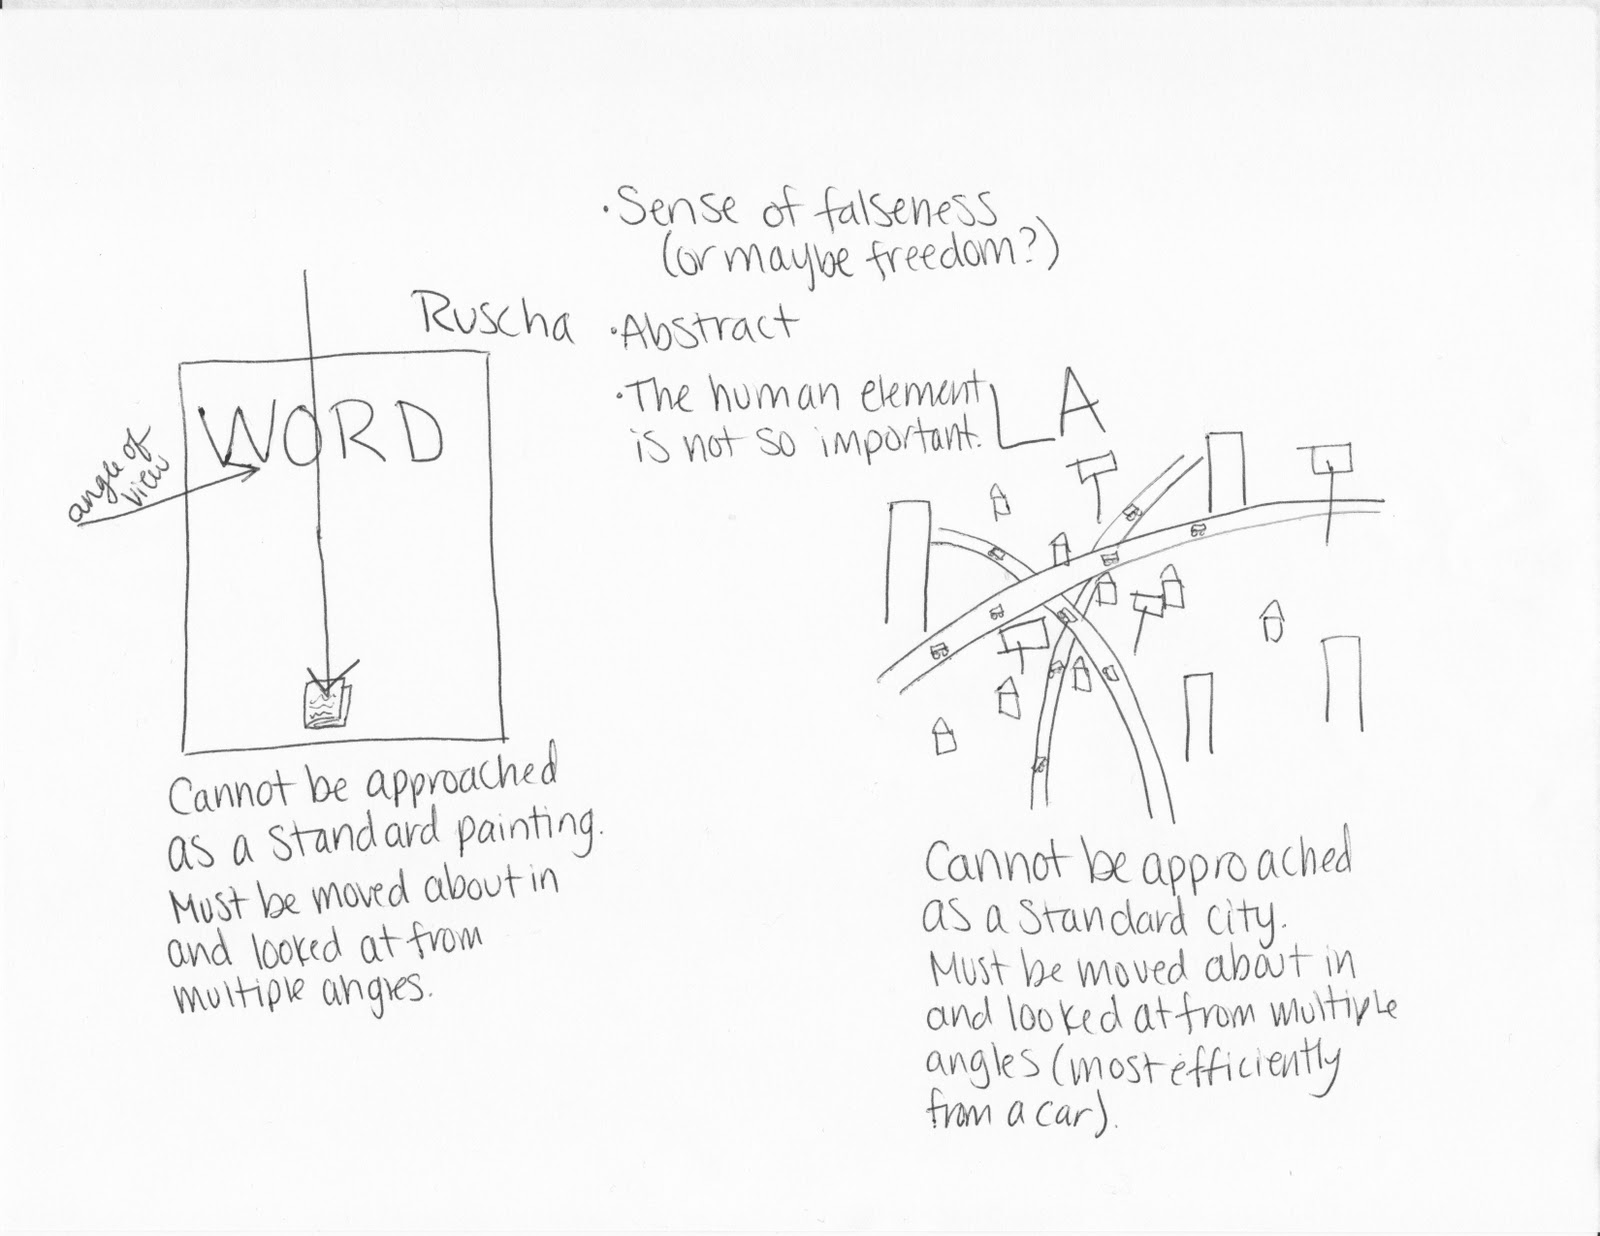 • Sense of falseness
(or maybe freedom?)
Ruscha
• Abstract
• The human element
is not so important.
LA
WORD
angle of
view
Cannot be approached
as a standard painting.
Must be moved about in
and looked at from
multiple angles.
Cannot be approached
as a standard city.
Must be moved about in
and looked at from multiple
angles (most efficiently
from a car).